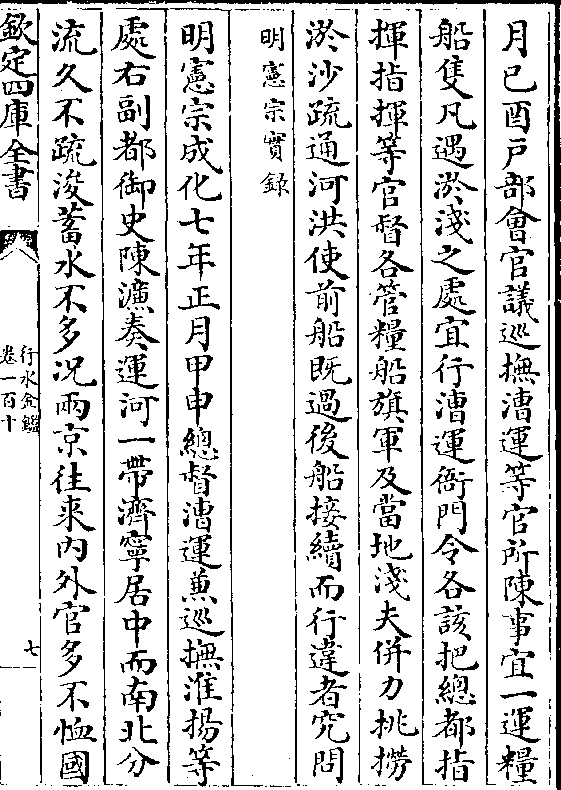 月已酉戸部會官議巡撫漕運等官所陳事宜一運糧
船隻凡遇淤淺之處宜行漕運衙門令各該把總都指
揮指揮等官督各管糧船旗軍及當地淺夫併力挑撈
淤沙疏通河洪使前船既過後船接續而行違者究問
明憲宗實録
明憲宗成化七年正月甲申總督漕運兼巡撫淮揚等
處右副都御史陳濂奏運河一帶濟寧居中而南北分
流久不疏浚蓄水不多况兩京往来内外官多不恤國
欽定四庫全書
行水金鑑
卷一百十
七